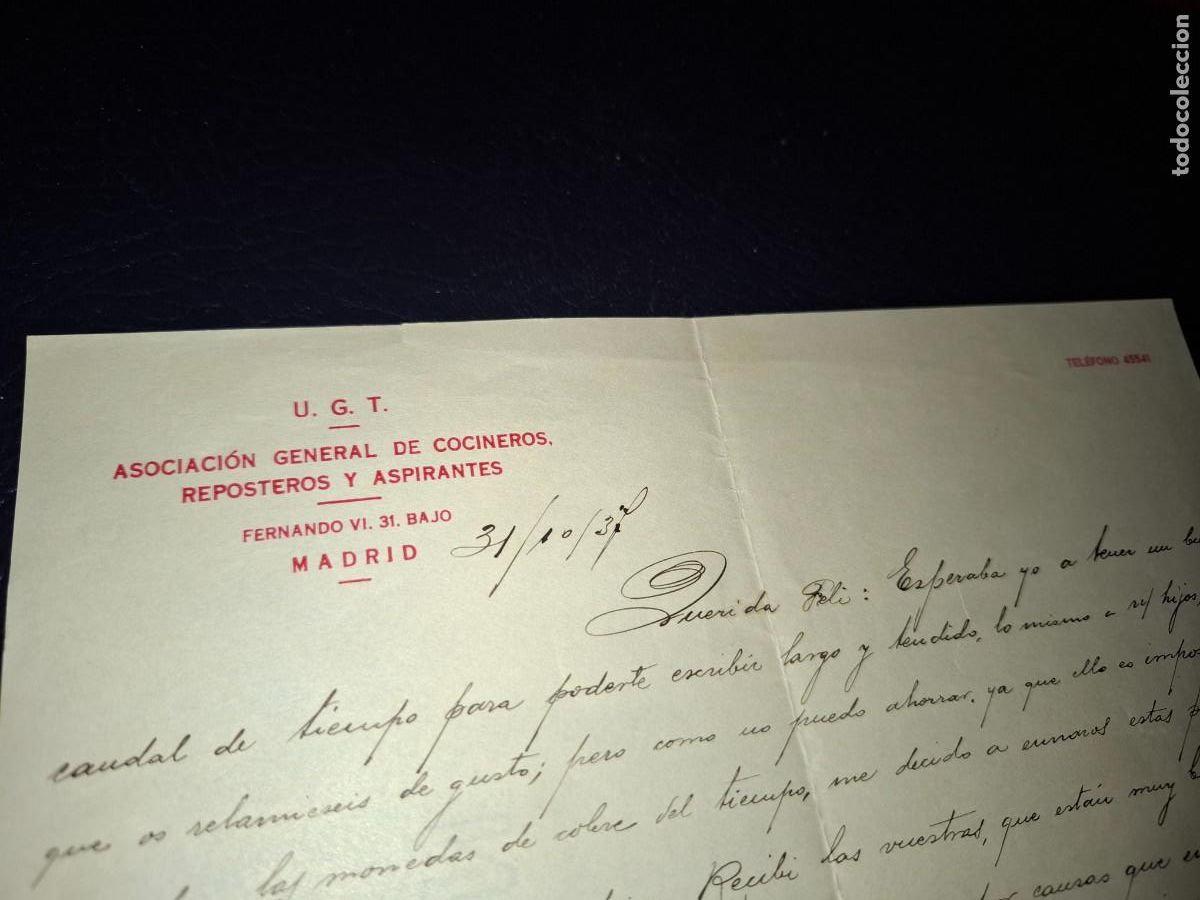 todocoleccion
TELÉFONO 45541
U. G. T.
ASOCIACIÓN GENERAL DE COCINEROS,
REPOSTEROS Y ASPIRANTES
FERNANDO VI. 31. BAJO
MADRID
31/10/37
Querida Feli: Esperaba yo a tener un
caudal de tiempo para poderte escribir largo y tendido, lo mismo a hijos,
que os relamieseis de gusto; pero como no puedo ahorrar, ya que ello es
las monedas de cobre del tiempo, me decido a estas
Recibi las vuestras, que están muy
causas que